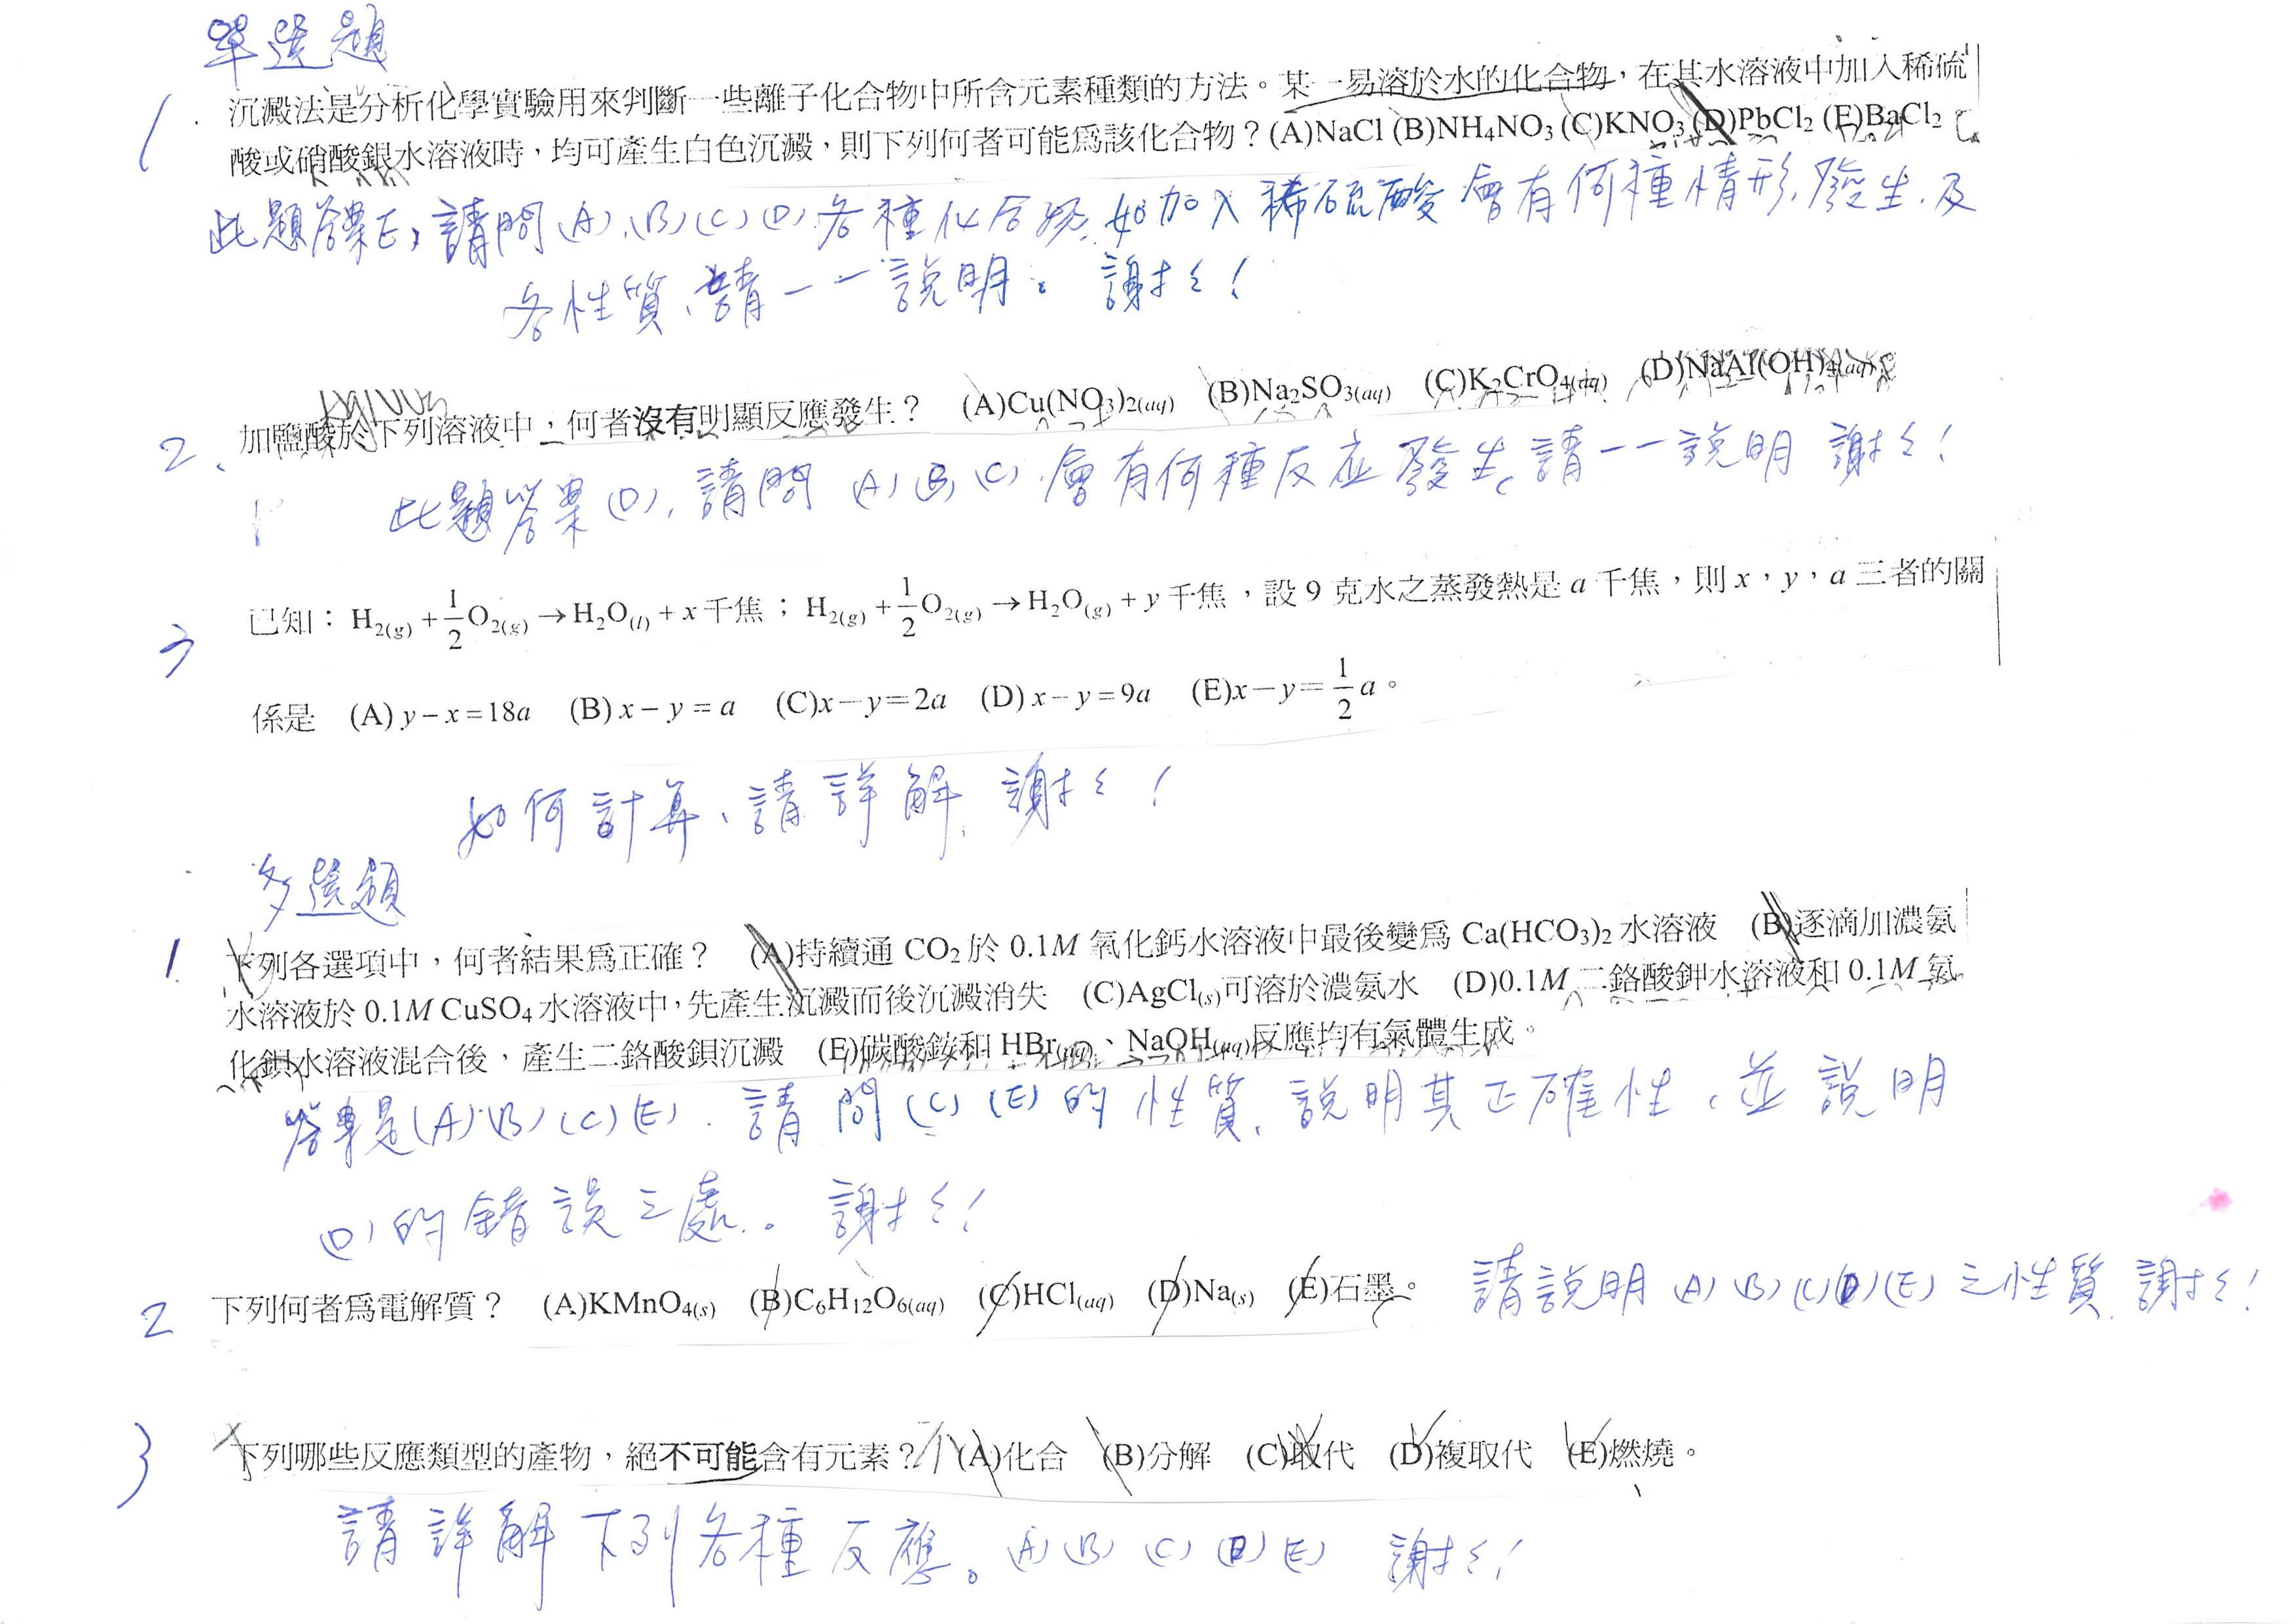 單選題
1. 沉澱法是分析化學實驗用來判斷一些離子化合物中所含元素種類的方法。某一易溶於水的化合物，在其水溶液中加入稀硫
酸或硝酸銀水溶液時，均可產生白色沉澱，則下列何者可能為該化合物？(A)NaCl (B)NH₄NO₃ (C)KNO₃ (D)PbCl₂ (E)BaCl₂
此題答案E，請問(A)、(B)(C)(D)各種化合物、如加入稀硫酸會有何種情形發生、及
各性質、請一一說明。謝謝！
2、加鹽酸於下列溶液中，何者沒有明顯反應發生？ (A)Cu(NO₃)₂(aq) (B)Na₂SO₃(aq) (C)K₂CrO₄(aq) (D)NaAl(OH)₄(aq)
此題答案(D)，請問(A)(B)(C)會有何種反應發生、請一一說明 謝謝！
3 已知：H₂(g)+1/2O₂(g)→H₂O(l)+x千焦；H₂(g)+1/2O₂(g)→H₂O(g)+y千焦，設9克水之蒸發熱是a千焦，則x，y，a三者的關
係是 (A) y－x＝18a (B) x－y＝a (C)x－y＝2a (D) x－y＝9a (E)x－y＝1/2a。
如何計算、請詳解、謝謝！
多選題
1. 下列各選項中，何者結果為正確？ (A)持續通CO₂於0.1M氧化鈣水溶液中最後變為Ca(HCO₃)₂水溶液 (B)逐滴加濃氨
水溶液於0.1M CuSO₄水溶液中，先產生沉澱而後沉澱消失 (C)AgCl(s)可溶於濃氨水 (D)0.1M二鉻酸鉀水溶液和0.1M氯
化鋇水溶液混合後，產生二鉻酸鋇沉澱 (E)碳酸銨和HBr(aq)、NaOH(aq)反應均有氣體生成。
答案是(A)(B)(C)(E)．請問(C)(E)的性質、說明其正確性、並說明
(D)的錯誤之處。謝謝！
2 下列何者為電解質？ (A)KMnO₄(s) (B)C₆H₁₂O₆(aq) (C)HCl(aq) (D)Na(s) (E)石墨。 請說明(A)(B)(C)(D)(E)之性質、謝謝！
3 下列哪些反應類型的產物，絕不可能含有元素？ (A)化合 (B)分解 (C)取代 (D)複取代 (E)燃燒。
請詳解下列各種反應。(A)(B)(C)(D)(E) 謝謝！